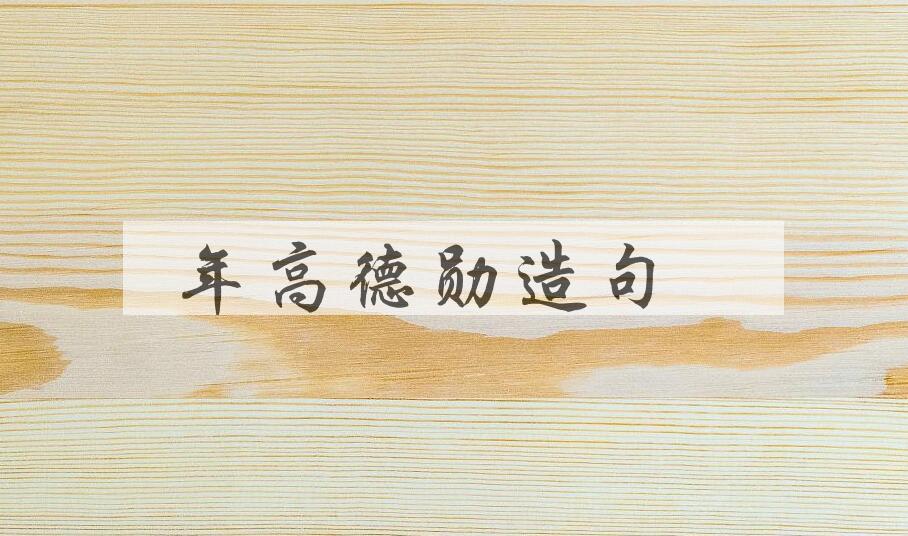 年高德勋造句